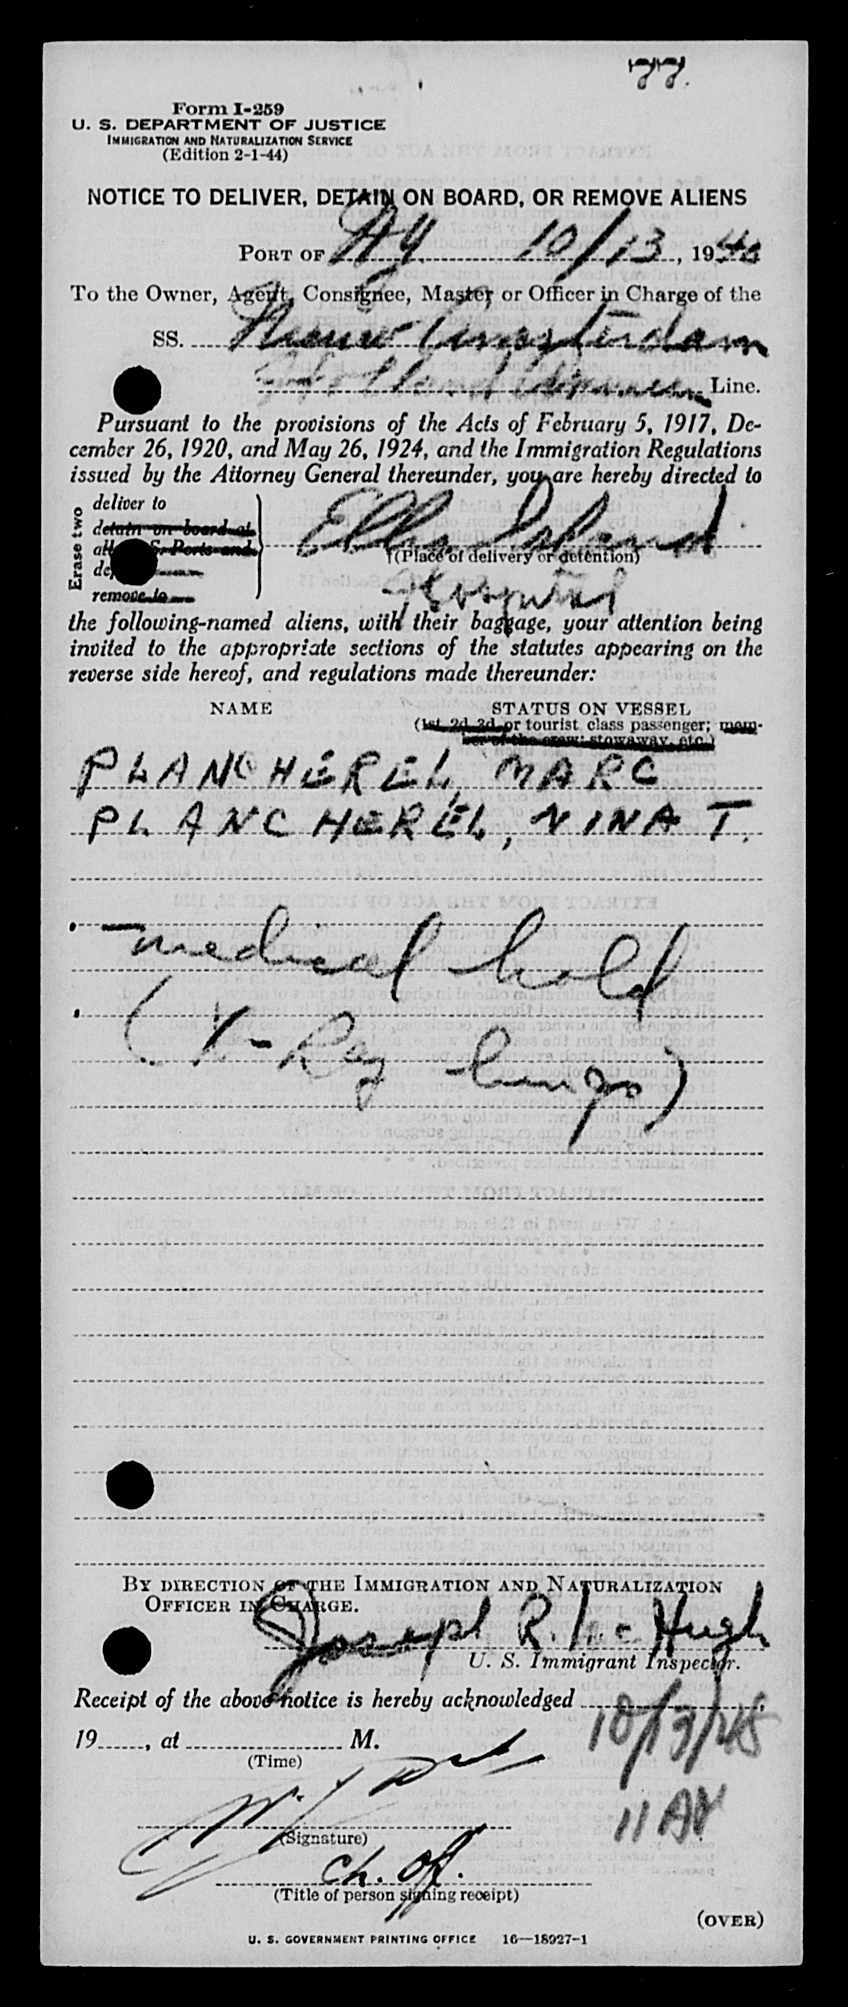 77.
Form I-259
U. S. DEPARTMENT OF JUSTICE
IMMIGRATION AND NATURALIZATION SERVICE
(Edition 2-1-44)
NOTICE TO DELIVER, DETAIN ON BOARD, OR REMOVE ALIENS
PORT OF NY 10/13, 194
To the Owner, Agent, Consignee, Master or Officer in Charge of the
SS. Nieuw Amsterdam
Holland American Line.
Pursuant to the provisions of the Acts of February 5, 1917, De-
cember 26, 1920, and May 26, 1924, and the Immigration Regulations
issued by the Attorney General thereunder, you are hereby directed to
Erase two
deliver to
detain on board at
all U. S. Ports and
remove to
Ellis Island
(Place of delivery or detention)
Hospital
the following-named aliens, with their baggage, your attention being
invited to the appropriate sections of the statutes appearing on the
reverse side hereof, and regulations made thereunder:
NAME STATUS ON VESSEL
(1st, 2d, 3d, or tourist class passenger; mem-
ber of the crew; stowaway, etc.)
PLANCHEREL, MARC
PLANCHEREL, NINA T.
medical hold
(X-Ray lungs)
BY DIRECTION OF THE IMMIGRATION AND NATURALIZATION
OFFICER IN CHARGE.
Joseph R. McHugh
U. S. Immigrant Inspector.
Receipt of the above notice is hereby acknowledged
10/13/48
19, at M.
(Time)
11 AM
(Signature)
ch. off.
(Title of person signing receipt)
(OVER)
U. S. GOVERNMENT PRINTING OFFICE 16—18927-1